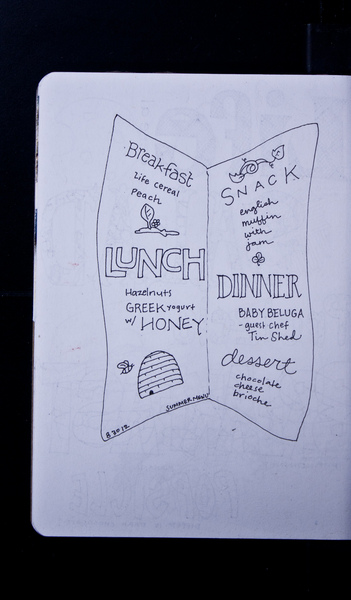 Breakfast
Life cereal
Peach
LUNCH
Hazelnuts
GREEK yogurt
w/ HONEY
SUMMER MENU
8.2012
SNACK
english
muffin
with
jam
DINNER
BABY BELUGA
- guest chef
Tin Shed
dessert
chocolate
cheese
brioche